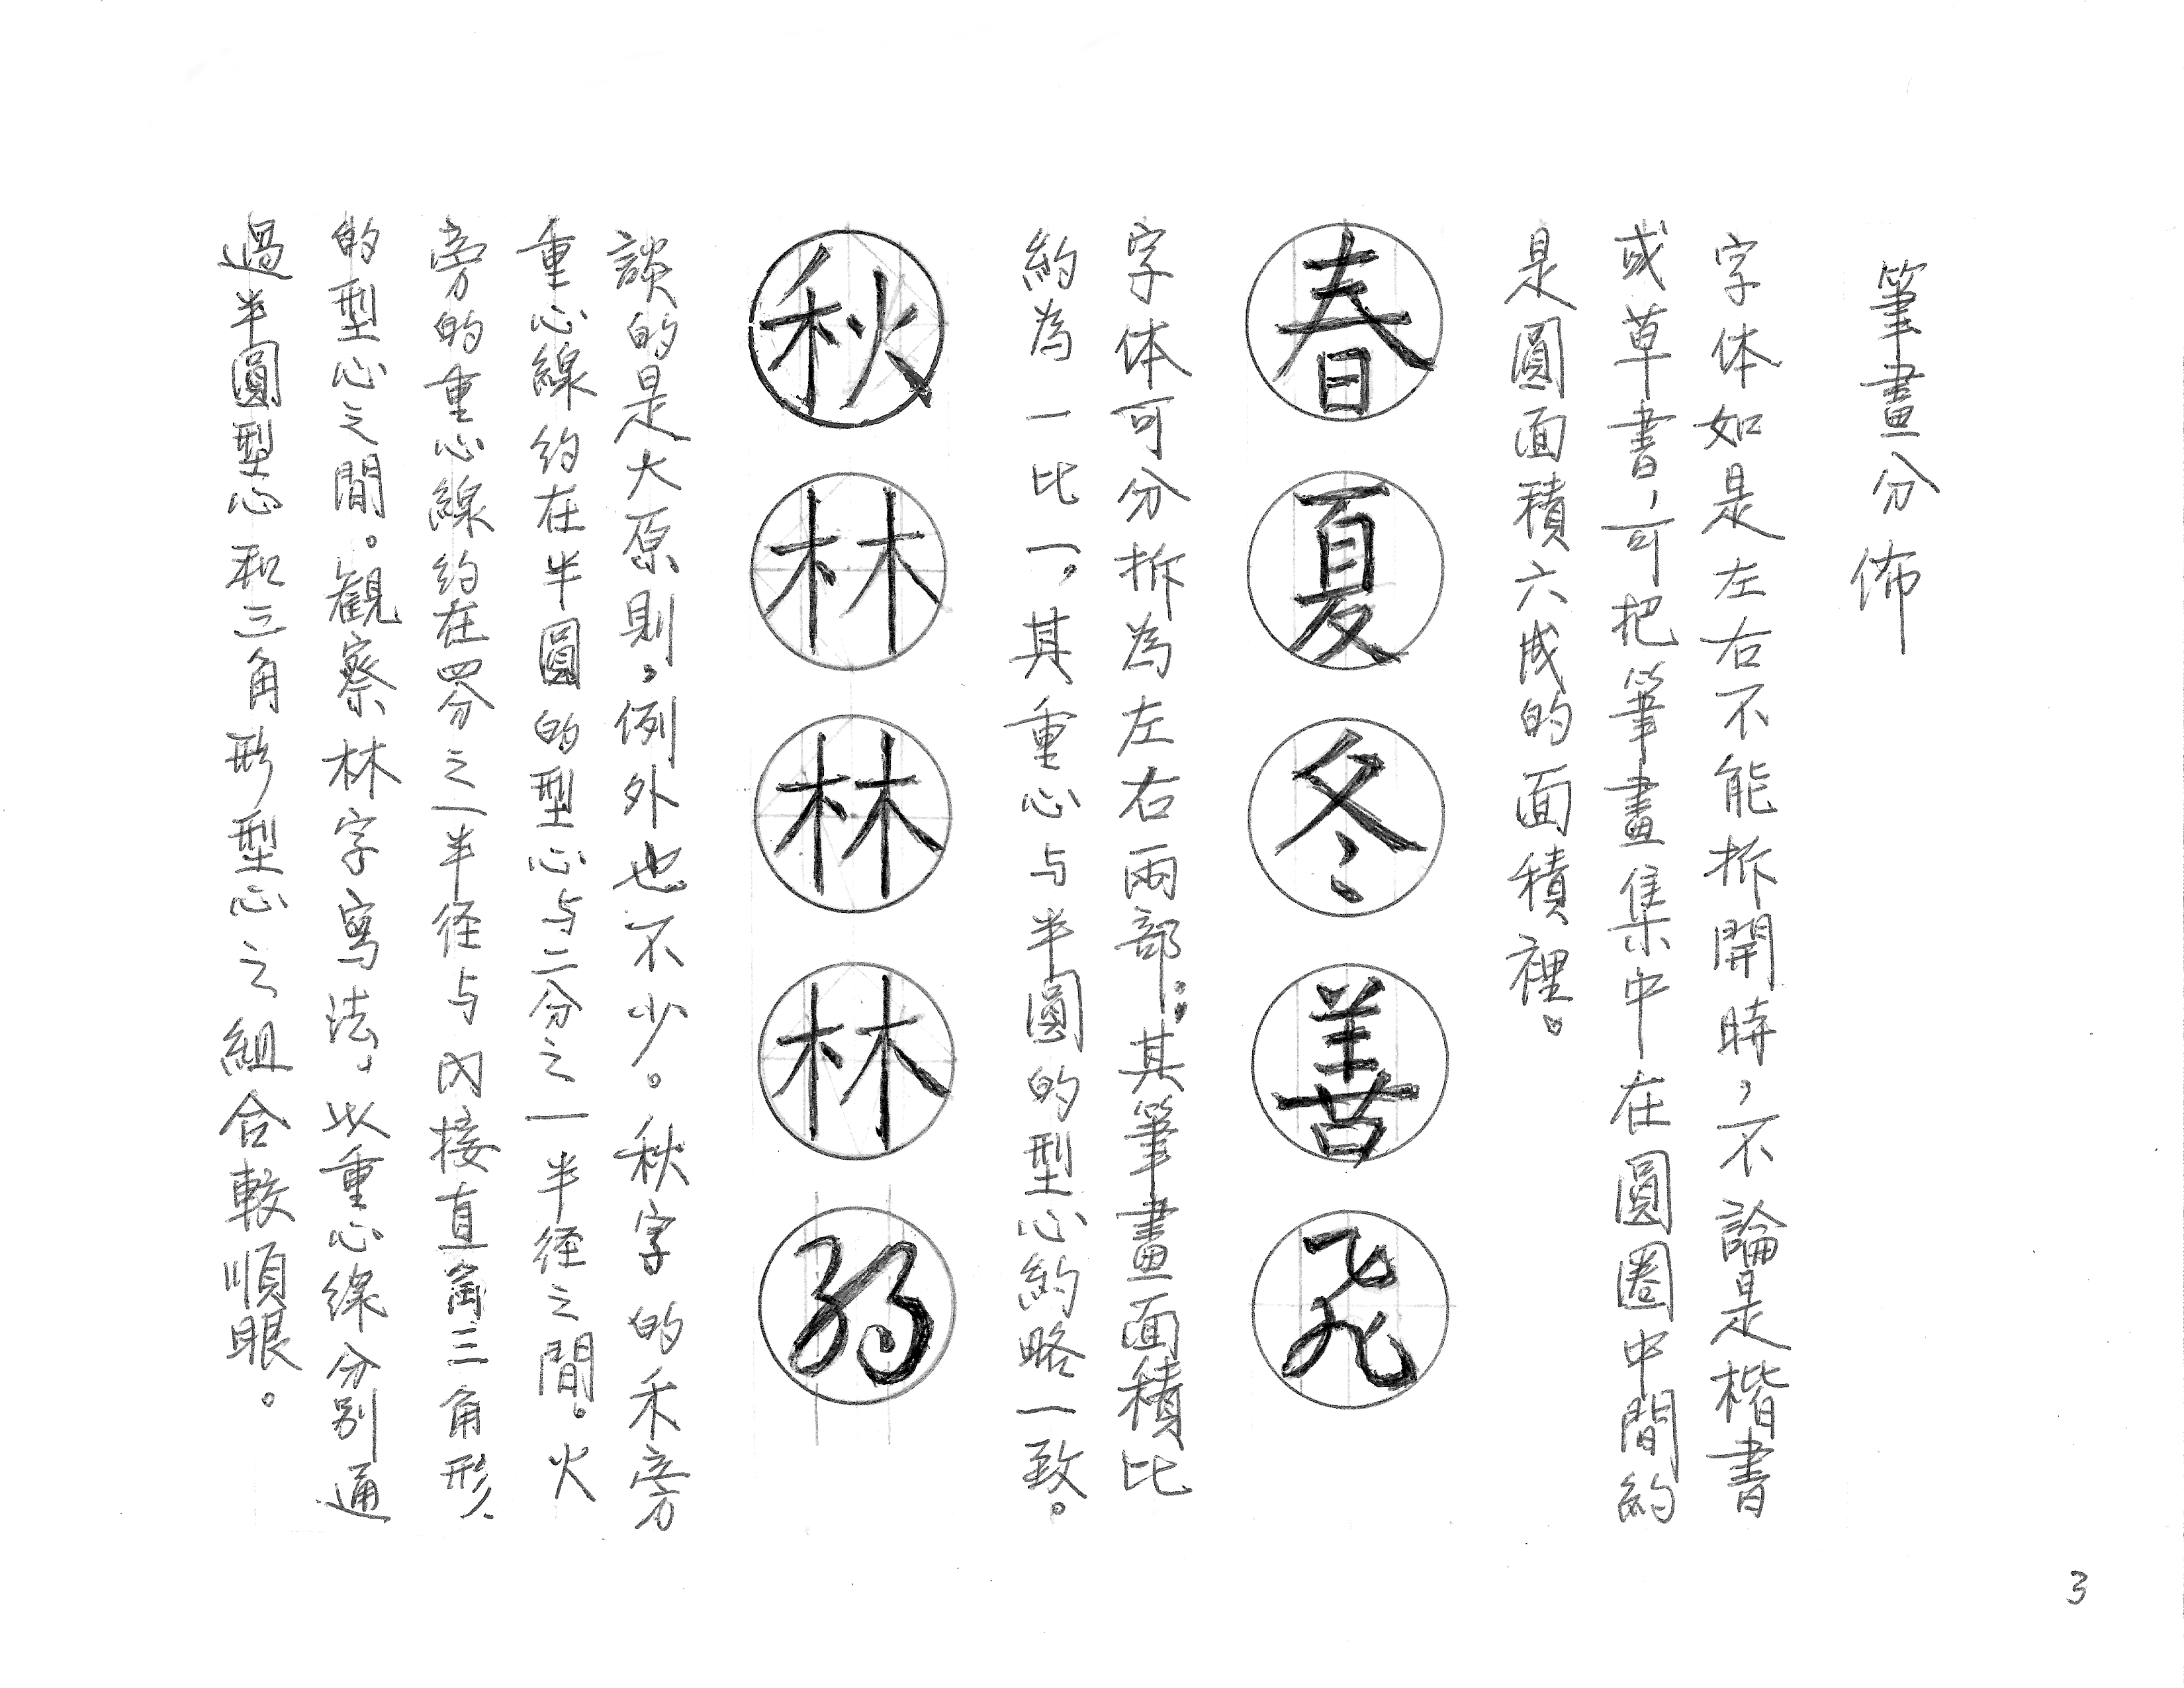 筆畫分佈
字体如是左右不能拆開時，不論是楷書
或草書，可把筆畫集中在圓圈中間約
是圓面積六成的面積裡。
春夏冬善飛
字体可分拆為左右兩部。其筆畫面積比
約為一比一。其重心与半圓的型心約略一致。
秋林林林弱
談的是大原則，例外也不少。秋字的禾旁
重心線约在半圓的型心与二分之一半径之間。火
旁的重心線约在四分之一半径与內接直角三角形
的型心之間。観察林字寫法，以重心線分别通
過半圓型心和三角形型心之組合較順眼。
3